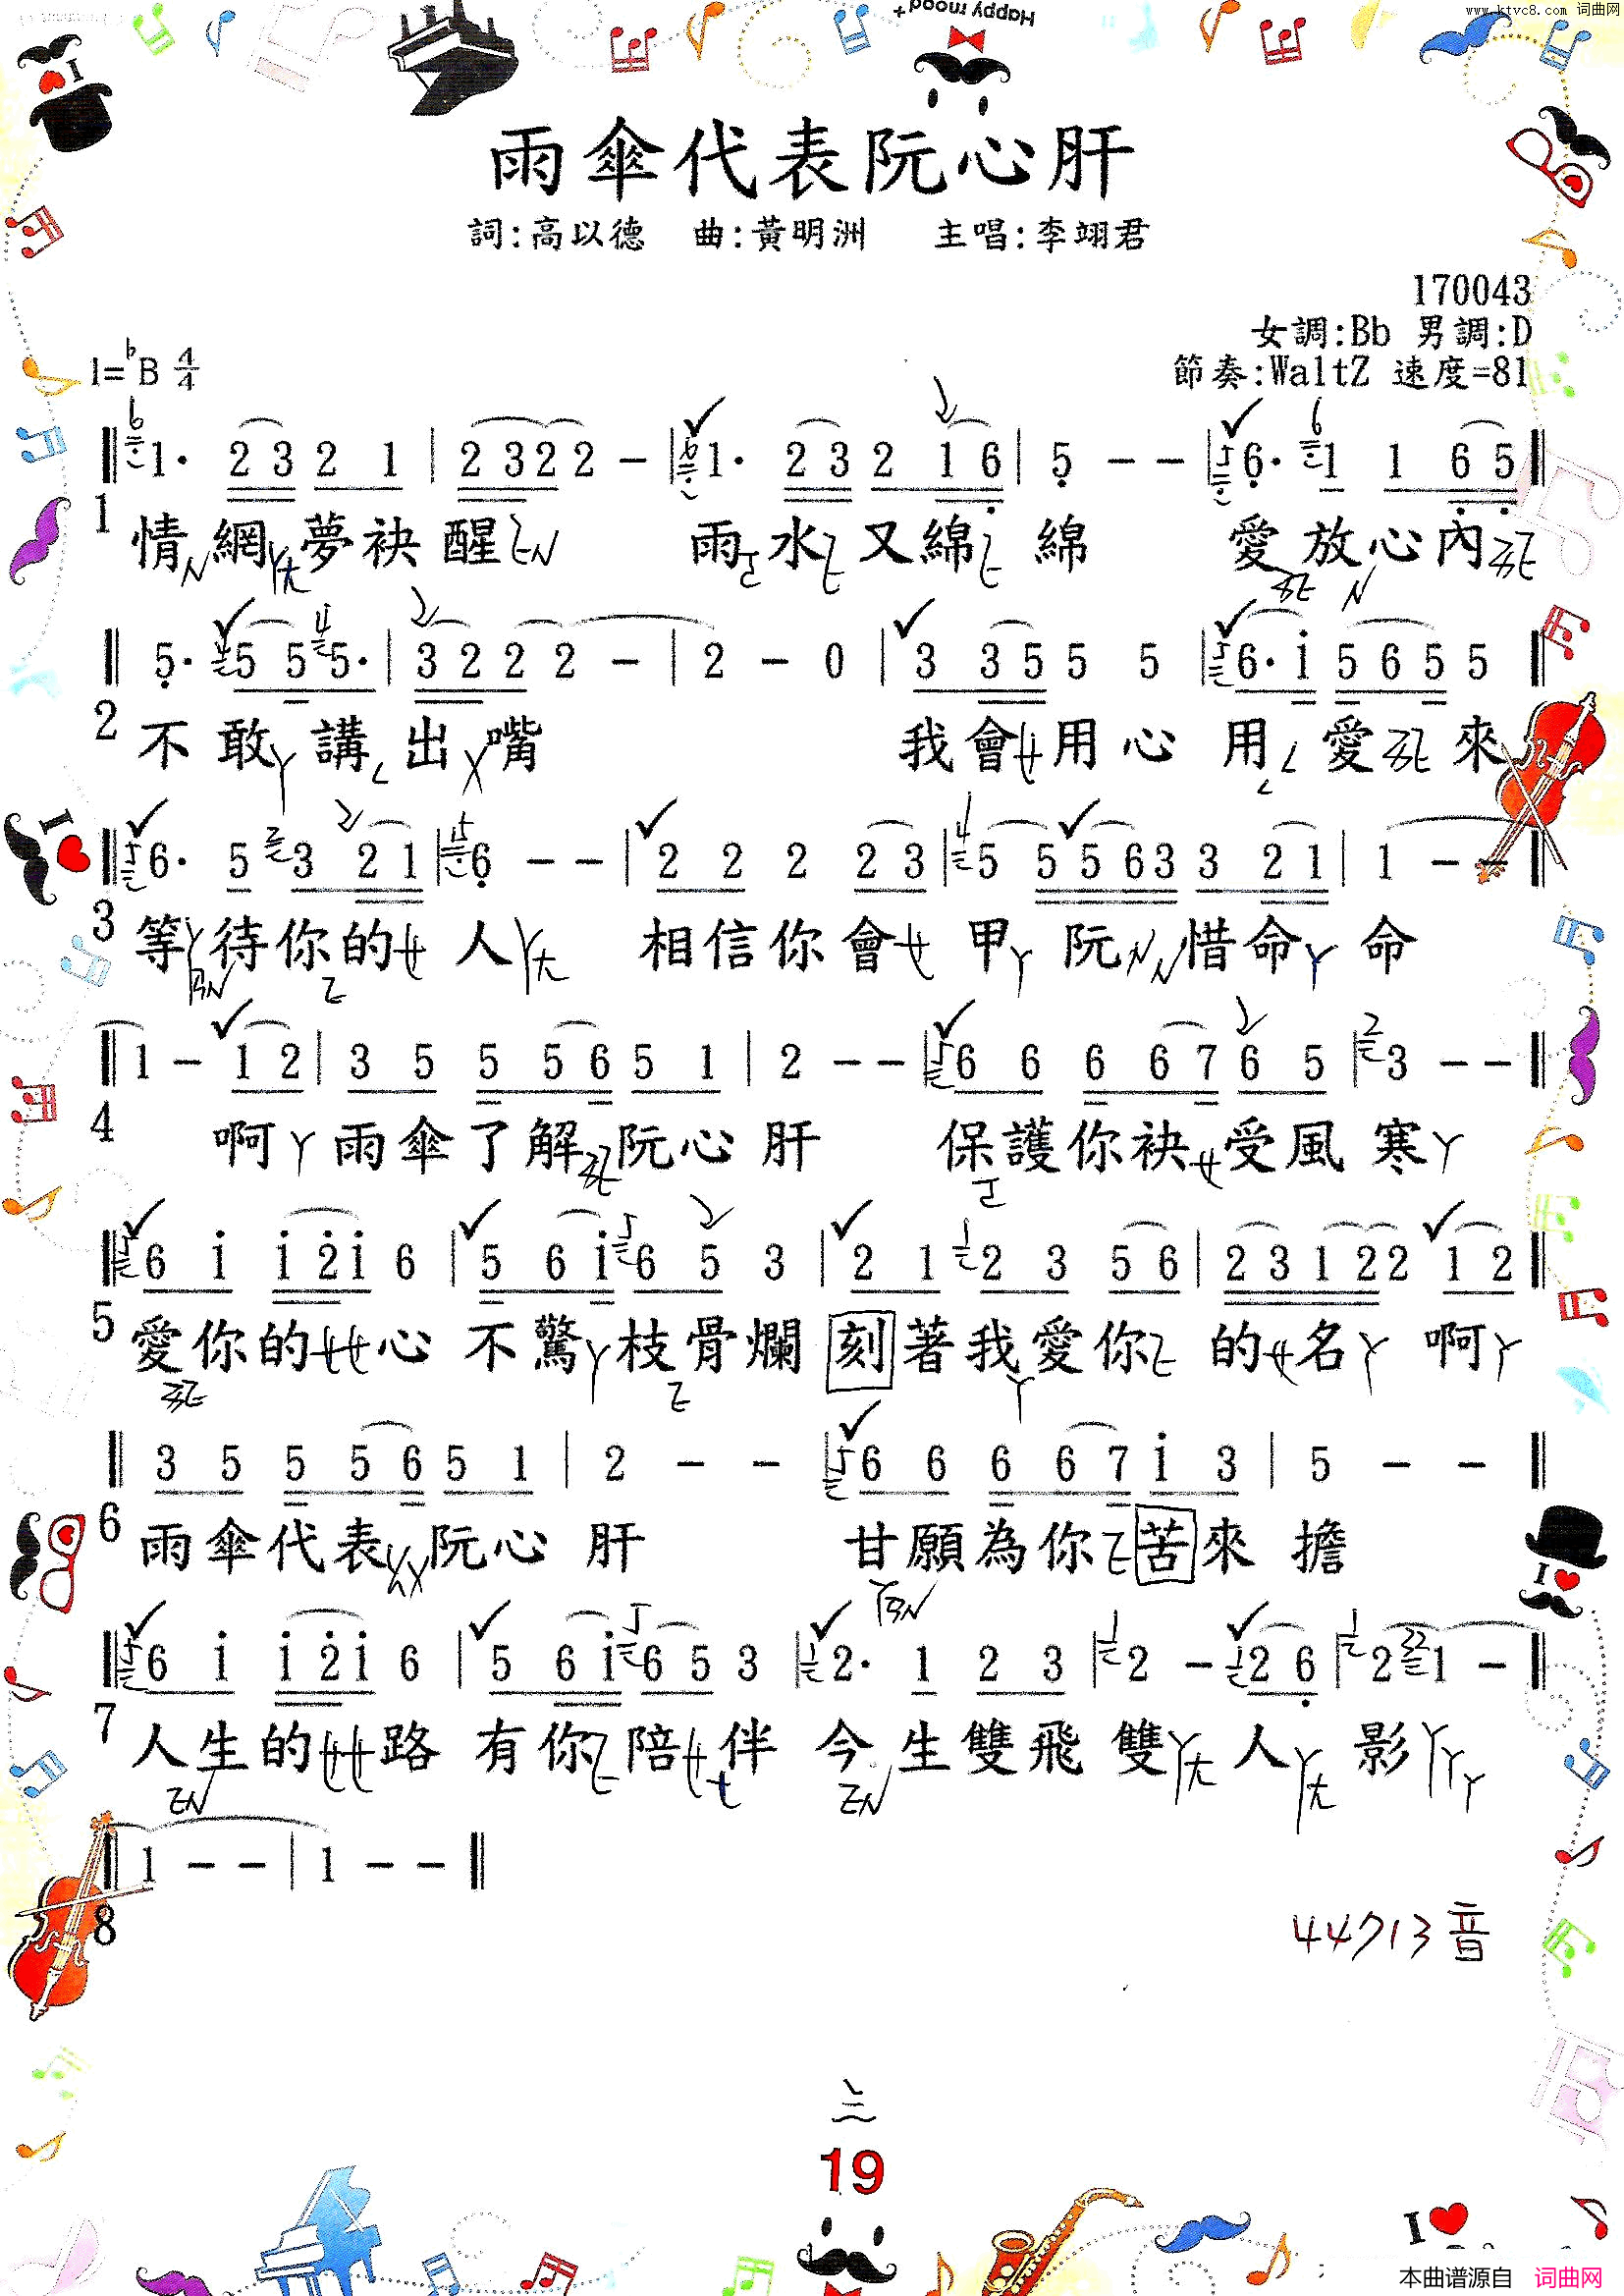 www.ktvc8.com 词曲网
Happy mood+
雨傘代表阮心肝
詞:高以德 曲:黃明洲 主唱:李翊君
170043
女調:Bb 男調:D
1=♭B 4/4
節奏:WaltZ 速度=81
1· 2 3 2 1 | 2 3 2 2 - | 1· 2 3 2 1 6 | 5 - - | 6· 1 1 6 5
1 情網夢袂醒 雨水又綿綿 愛放心內
5· 5 5 5· | 3 2 2 2 - | 2 - 0 | 3 3 5 5 5 | 6· i 5 6 5 5
2 不敢講出嘴 我會用心用愛來
6· 5 3 2 1 | 6 - - | 2 2 2 2 3 | 5 5 5 6 3 3 2 1 | 1 - -
3 等待你的人 相信你會甲阮惜命命
1 - 1 2 | 3 5 5 5 6 5 1 | 2 - - | 6 6 6 6 7 6 5 | 3 - -
4 啊雨傘了解阮心肝 保護你袂受風寒
6 i i 2 i 6 | 5 6 i 6 5 3 | 2 1 2 3 5 6 | 2 3 1 2 2 1 2
5 愛你的心 不驚枝骨爛 刻著我愛你的名 啊
3 5 5 5 6 5 1 | 2 - - | 6 6 6 6 7 i 3 | 5 - -
6 雨傘代表阮心肝 甘願為你苦來擔
6 i i 2 i 6 | 5 6 i 6 5 3 | 2· 1 2 3 | 2 - 2 6 | 2 1 -
7 人生的路 有你陪伴 今生雙飛雙人影
1 - - | 1 - -
8
44713音
19
I
本曲谱源自 词曲网